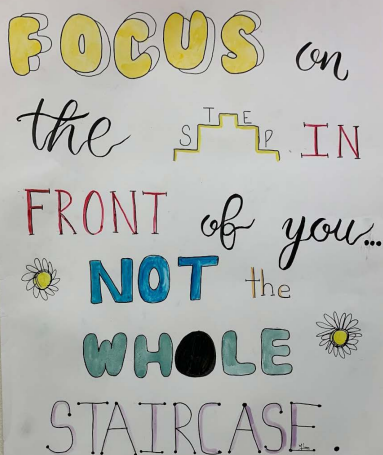 FOCUS on
the STEP IN
FRONT of you...
NOT the
WHOLE
STAIRCASE.